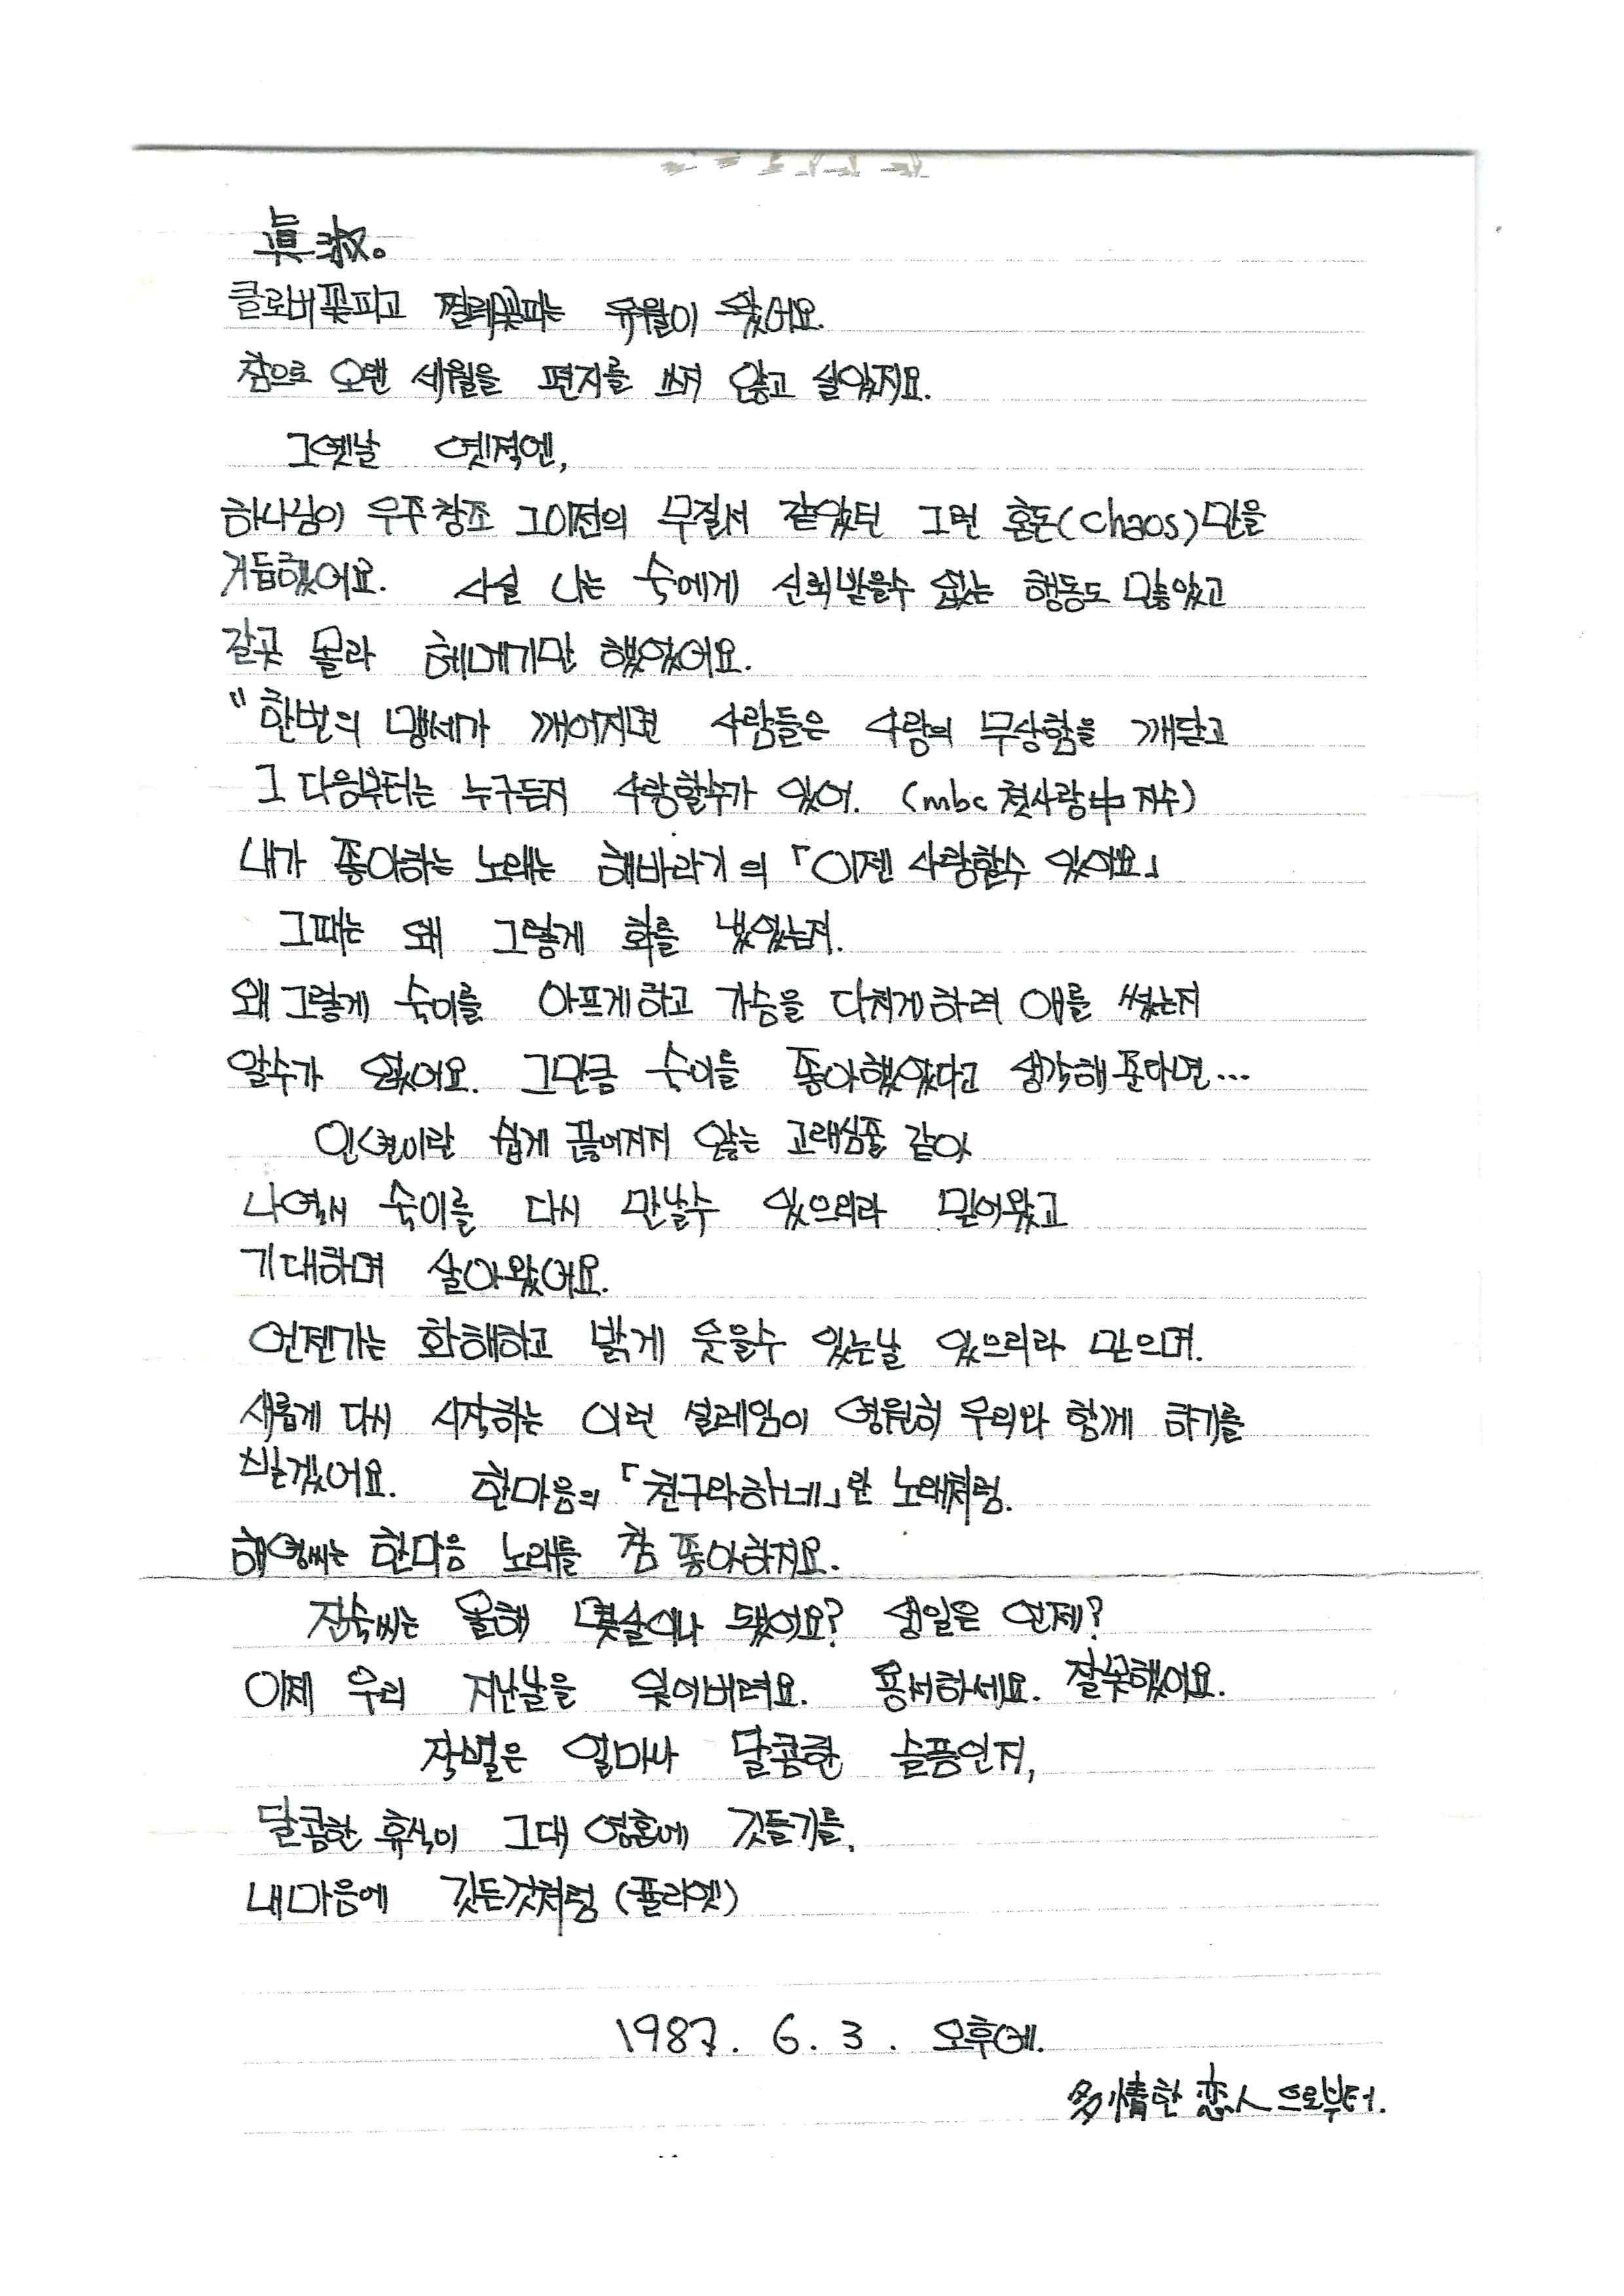 眞淑。
클로버꽃피고 찔레꽃피는 유월이 왔어요.
참으로 오랜 세월을 편지를 쓰지 않고 살았지요.
그옛날 옛적엔,
하나님이 우주창조 그이전의 무질서 같았던 그런 혼돈(chaos)만을
거듭했어요. 사실 나는 숙에게 신뢰받을수 없는 행동도 많았고
갈곳 몰라 헤메기만 했었어요.
"한번의 맹세가 깨어지면 사람들은 사랑의 무상함을 깨닫고
그 다음부터는 누구든지 사랑할수가 있어. (mbc 첫사랑中 지수)
내가 좋아하는 노래는 해바라기의 「이젠 사랑할수 있어요」
그때는 왜 그렇게 화를 냈었는지.
왜 그렇게 숙이를 아프게하고 가슴을 다치게하려 애를 썼는지
알수가 없어요. 그만큼 숙이를 좋아했었다고 생각해 준다면...
인연이란 쉽게 끊어지지 않는 고래심줄 같아
나역시 숙이를 다시 만날수 있으리라 믿어왔고
기대하며 살아왔어요.
언젠가는 화해하고 밝게 웃을수 있는날 있으리라 믿으며.
새롭게 다시 시작하는 이런 설레임이 영원히 우리와 함께 하기를
빌겠어요. 한마음의 「친구라하네」란 노래처럼.
해영씨는 한마음 노래를 참 좋아하지요.
진숙씨는 올해 몇살이나 됐어요? 생일은 언제?
이제 우리 지난날을 잊어버려요. 용서하세요. 잘못했어요.
작별은 얼마나 달콤한 슬픔인지,
달콤한 휴식이 그대 영혼에 깃들기를,
내마음에 깃든것처럼 (쥴리엣)
1987. 6. 3. 오후에.
多情한 恋人으로부터.